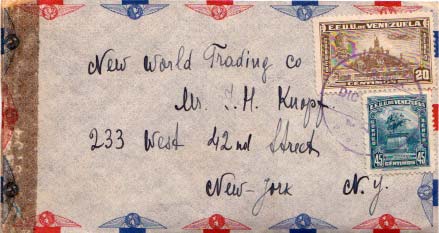 New World Trading Co
Mr. J. H. Knopf.
233 West 42nd Street
New-York N.Y.
E.E.U.U. DE VENEZUELA
20
CENTIMOS
DIC
E.E.U.U. DE VENEZUELA
45 45
CENTIMOS